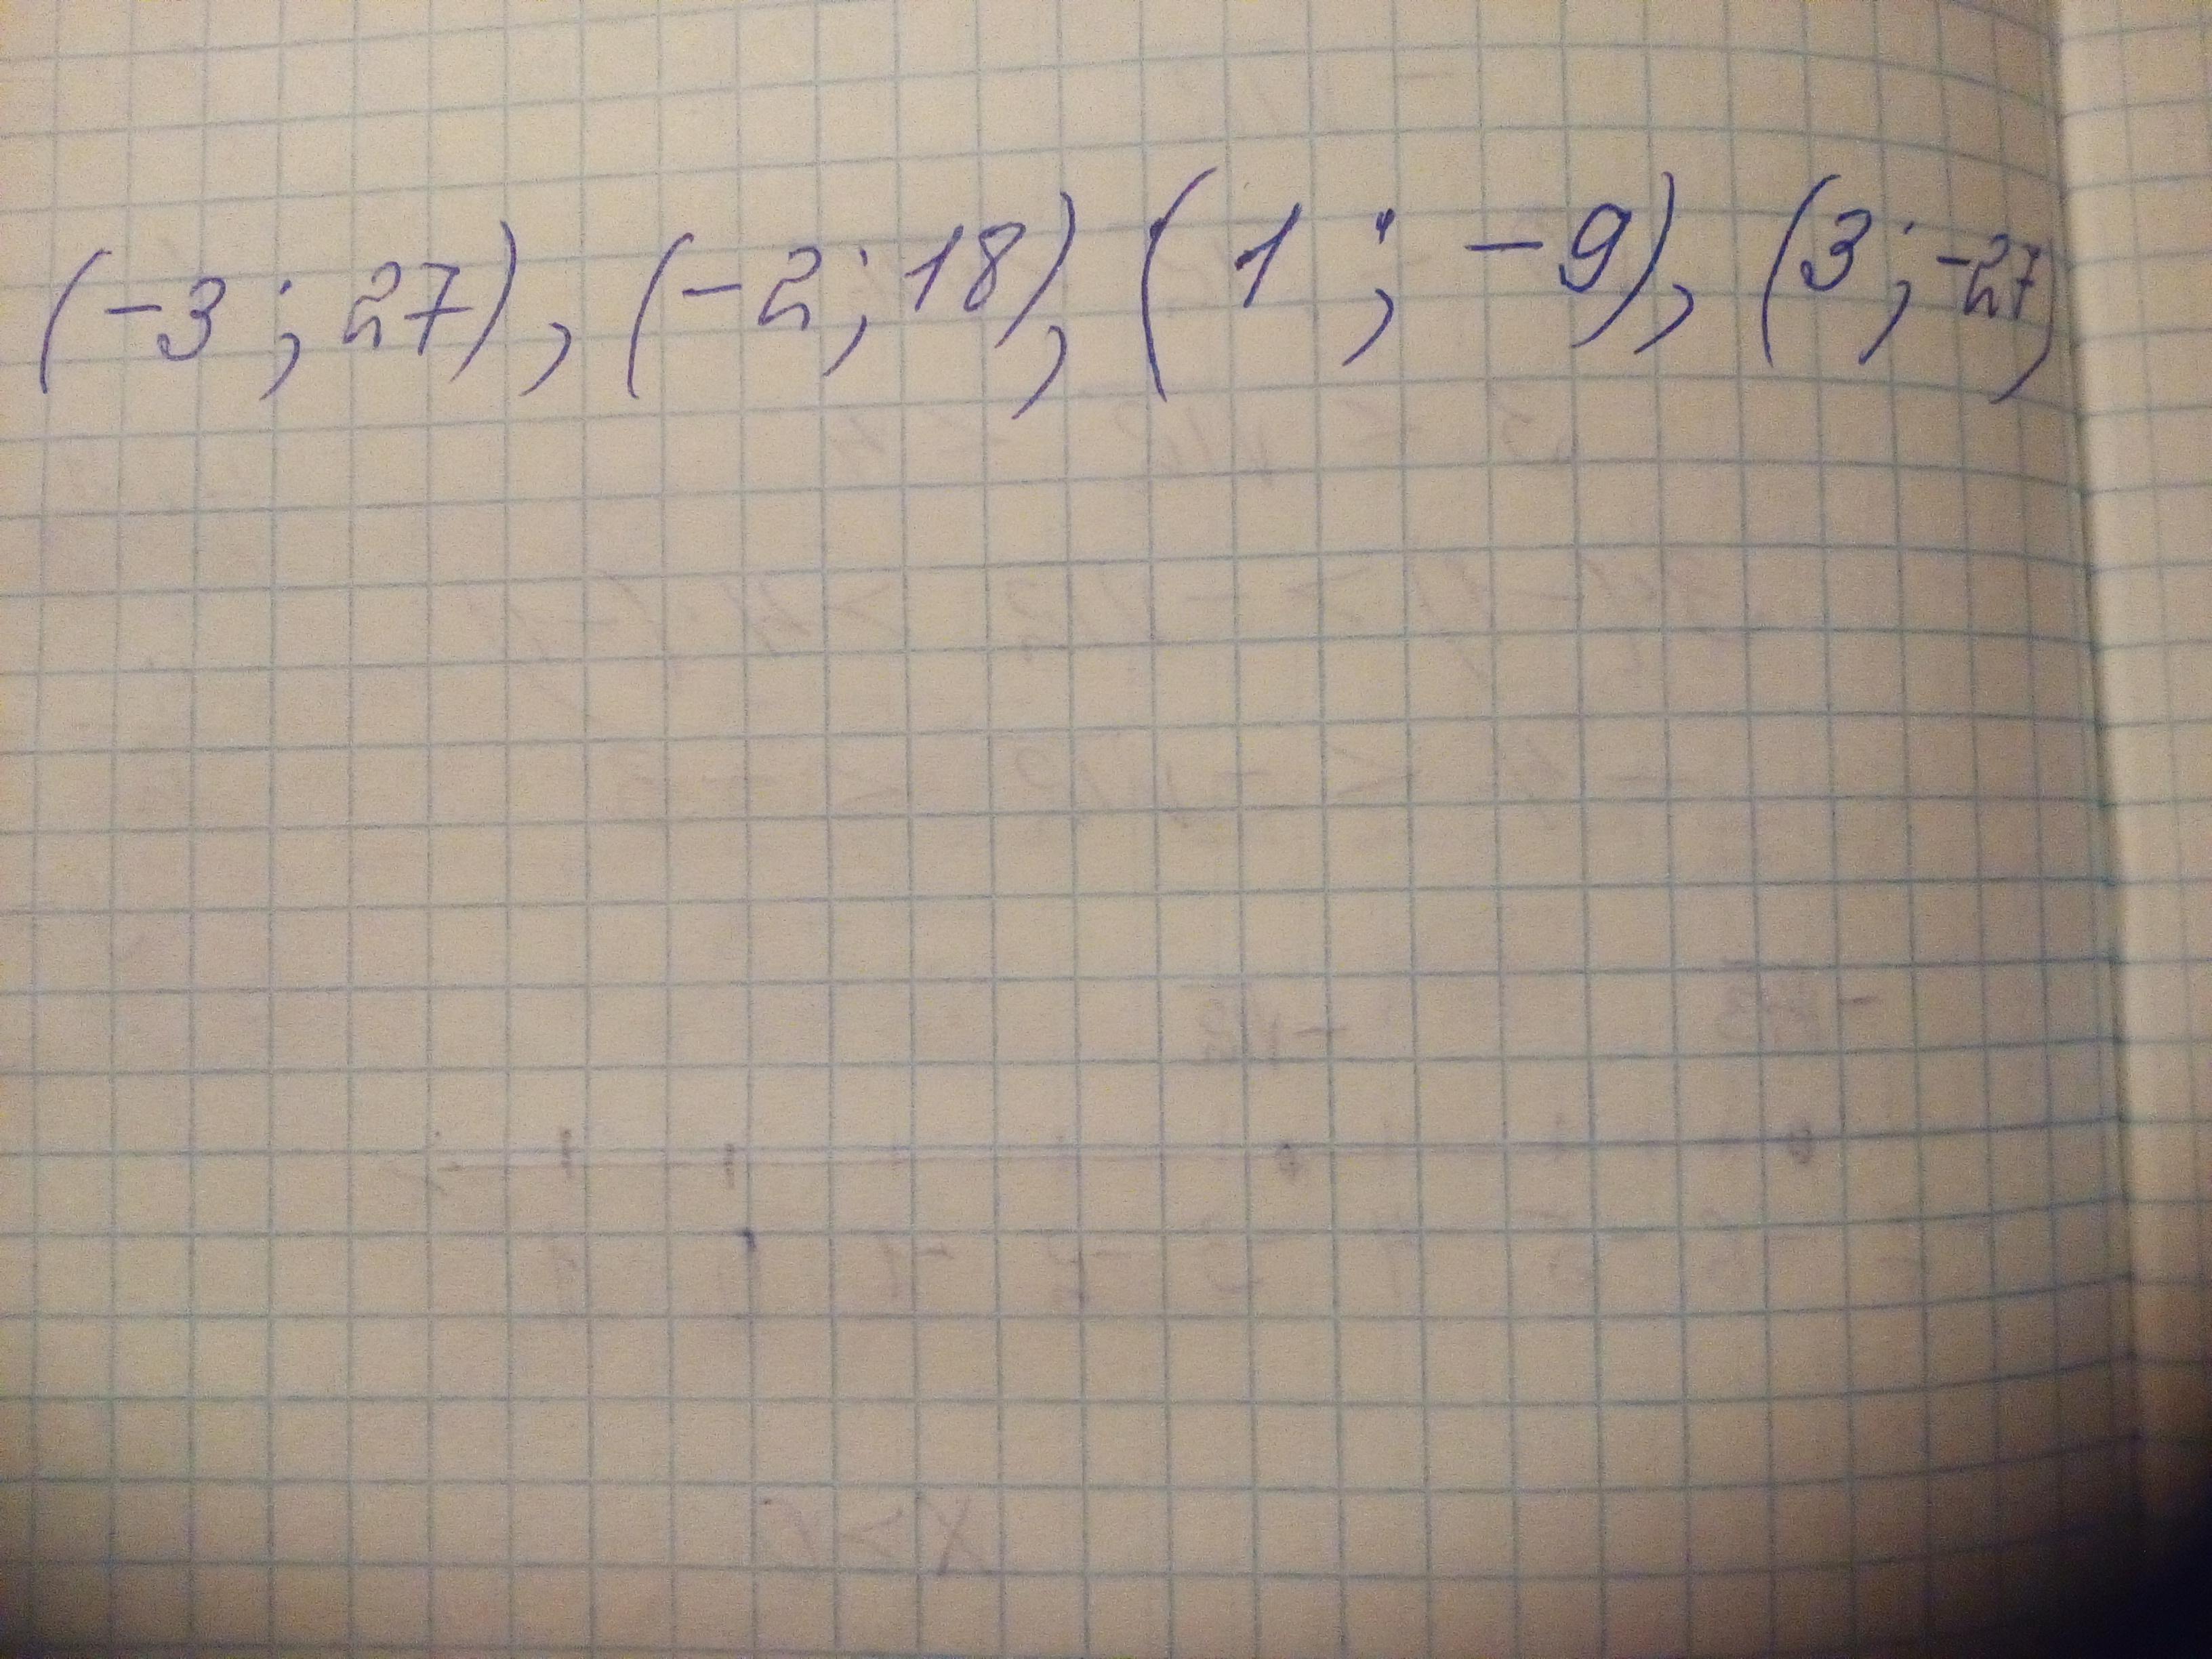 (-3; 27), (-2; 18), (1; -9), (3; -27)